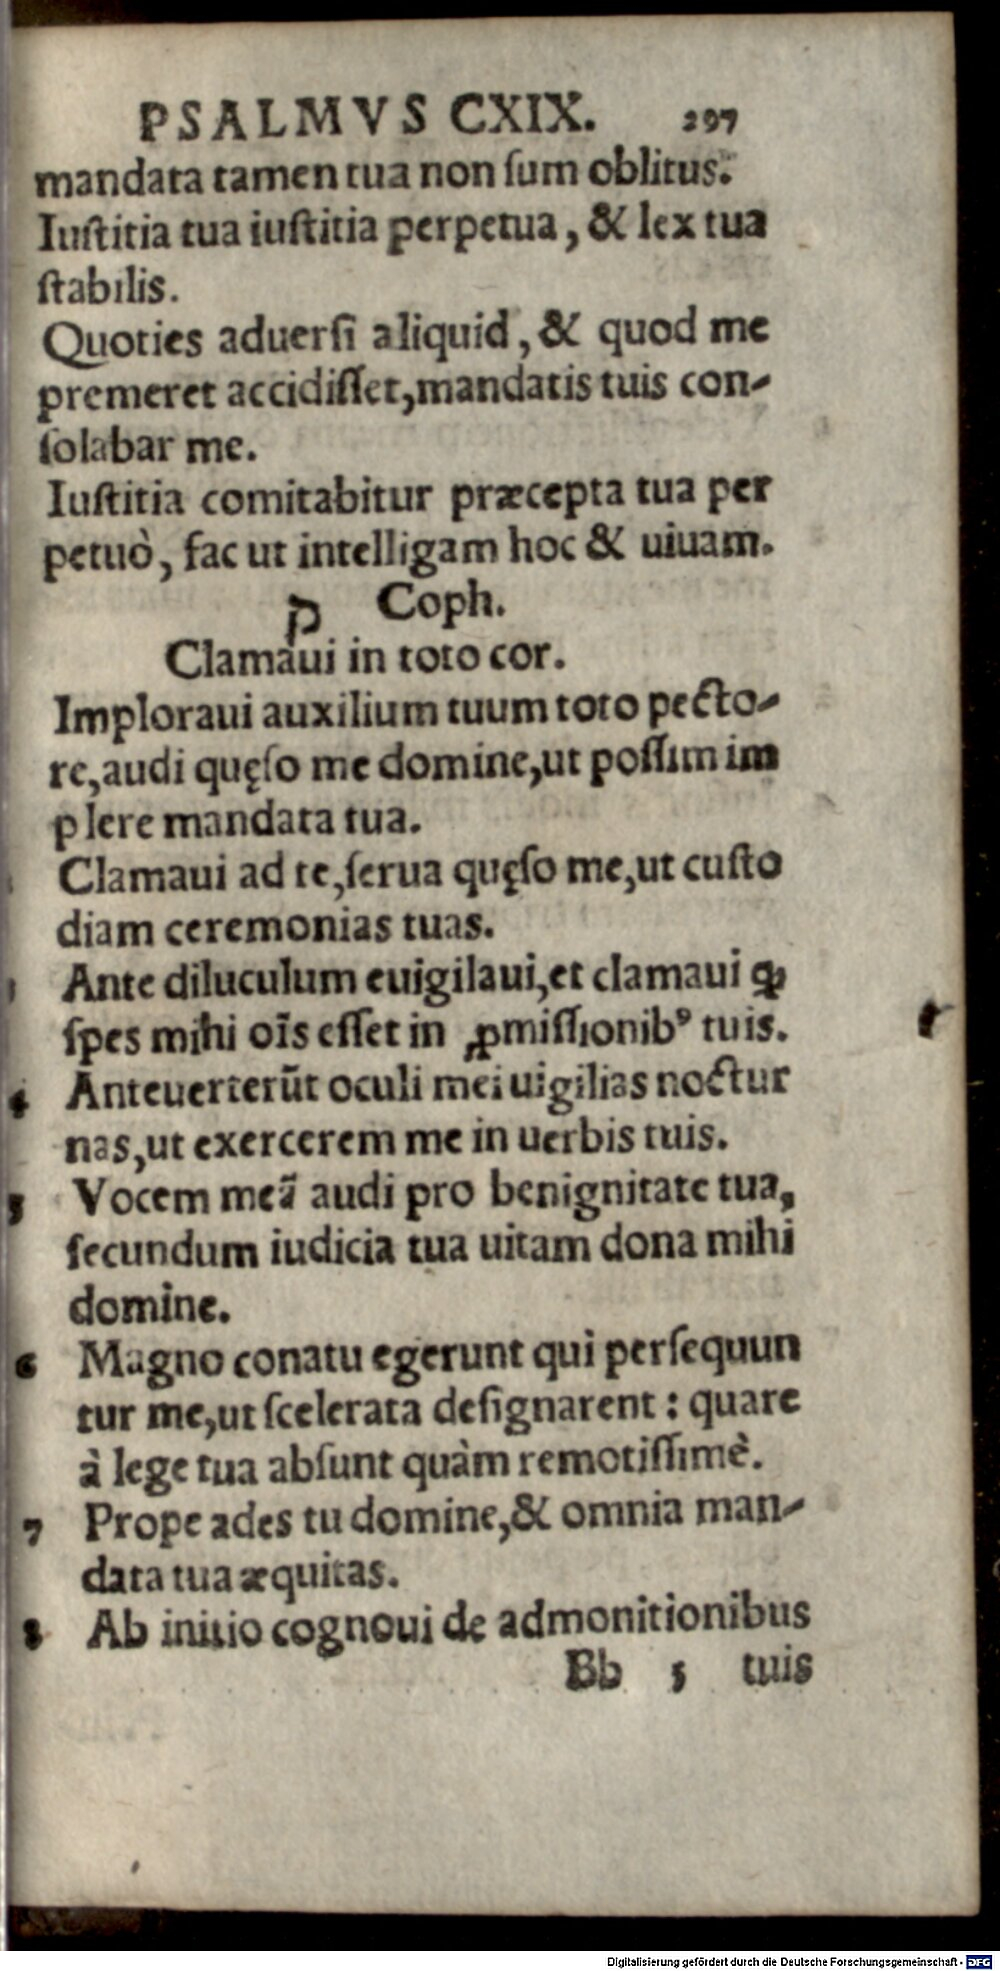 PSALMVS CXIX. 297
mandata tamen tua non ſum oblitus.
Iuſtitia tua iuſtitia perpetua, & lex tua
ſtabilis.
Quoties aduerſi aliquid, & quod me
premeret accidiſſet, mandatis tuis con-
ſolabar me.
Iuſtitia comitabitur præcepta tua per
petuò, fac ut intelligam hoc & uiuam.
ק Coph.
Clamaui in toto cor.
Imploraui auxilium tuum toto pecto-
re, audi quęſo me domine, ut poſſim im
plere mandata tua.
Clamaui ad te, ſerua quęſo me, ut cuſto
diam ceremonias tuas.
Ante diluculum euigilaui, et clamaui ꝙ
ſpes mihi oīs eſſet in ꝓmiſſionibꝰ tuis.
4 Anteuerterūt oculi mei uigilias noctur
nas, ut exercerem me in uerbis tuis.
5 Vocem meā audi pro benignitate tua,
ſecundum iudicia tua uitam dona mihi
domine.
6 Magno conatu egerunt qui perſequun
tur me, ut ſcelerata deſignarent: quare
à lege tua abſunt quàm remotiſſimè.
7 Prope ades tu domine, & omnia man-
data tua æquitas.
8 Ab initio cognoui de admonitionibus
Bb 5 tuis
Digitalisierung gefördert durch die Deutsche Forschungsgemeinschaft - DFG